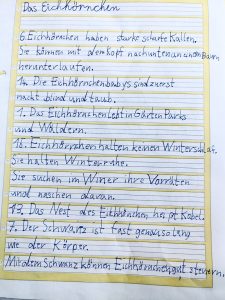 Das Eichhörnchen
6. Eichhörnchen haben starke scharfe Kallen.
Sie können mit dem kopf nach unten an einem Baum
herunterlaufen.
14. Die Eichhörnchenbabys sind zuerst
nackt blind und taub.
1. Das Eichhörnchen lebt in Gärten Parks
und Wäldern.
18. Eichhörnchen halten keinen Winterschlaf.
Sie halten Winterruhe.
Sie suchen im Winer ihre Vorräten
und naschen daran.
13. Das Nest des Eichhönchen heißt Kobel.
7. Der Schwanz ist fast genauso lang
wie der Körper.
Mit dem Schwanz können Eichhörnchen gut steuern.